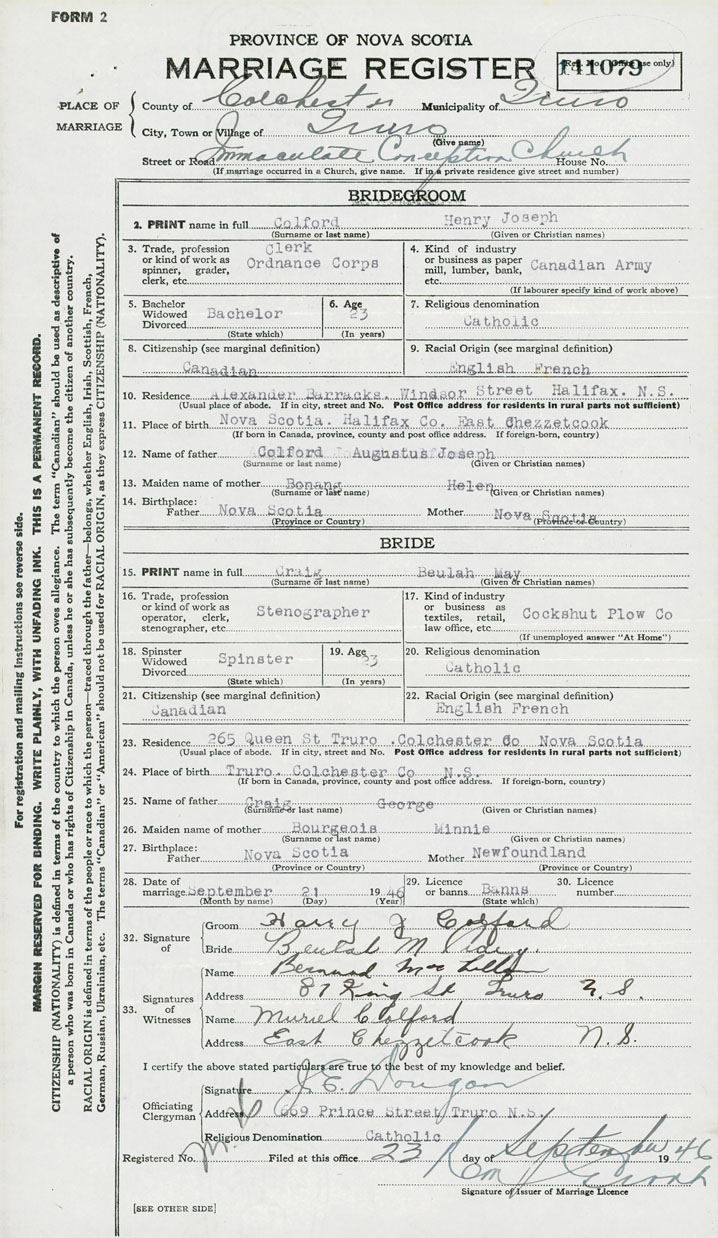 FORM 2
PROVINCE OF NOVA SCOTIA
MARRIAGE REGISTER
(Reg. No. Office use only)
141079
PLACE OF MARRIAGE
County of Colchester Municipality of Truro
City, Town or Village of Truro
(Give name)
Street or Road Immaculate Conception Church House No.
(If marriage occurred in a Church, give name. If in a private residence give street and number)
BRIDEGROOM
2. PRINT name in full Colford Henry Joseph
(Surname or last name) (Given or Christian names)
3. Trade, profession or kind of work as spinner, grader, clerk, etc. Clerk Ordnance Corps
4. Kind of industry or business as paper mill, lumber, bank, etc. Canadian Army
(If labourer specify kind of work above)
5. Bachelor Widowed Divorced Bachelor
(State which)
6. Age 23
(In years)
7. Religious denomination
Catholic
8. Citizenship (see marginal definition)
Canadian
9. Racial Origin (see marginal definition)
English French
10. Residence Alexander Barracks. Windsor Street Halifax. N.S.
(Usual place of abode. If in city, street and No. Post Office address for residents in rural parts not sufficient)
11. Place of birth Nova Scotia. Halifax Co. East Chezzetcook
(If born in Canada, province, county and post office address. If foreign-born, country)
12. Name of father Colford Augustus Joseph
(Surname or last name) (Given or Christian names)
13. Maiden name of mother Bonang Helen
(Surname or last name) (Given or Christian names)
14. Birthplace:
Father Nova Scotia Mother Nova Scotia
(Province or Country) (Province or Country)
BRIDE
15. PRINT name in full Craig Beulah May
(Surname or last name) (Given or Christian names)
16. Trade, profession or kind of work as operator, clerk, stenographer, etc. Stenographer
17. Kind of industry or business as textiles, retail, law office, etc. Cockshut Plow Co
(If unemployed answer "At Home")
18. Spinster Widowed Divorced Spinster
(State which)
19. Age 23
(In years)
20. Religious denomination
Catholic
21. Citizenship (see marginal definition)
Canadian
22. Racial Origin (see marginal definition)
English French
23. Residence 265 Queen St Truro .Colchester Co Nova Scotia
(Usual place of abode. If in city, street and No. Post Office address for residents in rural parts not sufficient)
24. Place of birth Truro. Colchester Co N.S.
(If born in Canada, province, county and post office address. If foreign-born, country)
25. Name of father Craig George
(Surname or last name) (Given or Christian names)
26. Maiden name of mother Bourgeois Minnie
(Surname or last name) (Given or Christian names)
27. Birthplace:
Father Nova Scotia Mother Newfoundland
(Province or Country) (Province or Country)
28. Date of marriage September 21 1946
(Month by name) (Day) (Year)
29. Licence or banns Banns
(State which)
30. Licence number
32. Signature of
Groom Harry J Colford
Bride Beulah M
33. Signatures of Witnesses
Name Bernard
Address 87 King St Truro N.S.
Name Muriel Colford
Address East Chezzetcook N.S.
I certify the above stated particulars are true to the best of my knowledge and belief.
Officiating Clergyman
Signature J.E. Dougan
Address 669 Prince Street Truro N.S.
Religious Denomination Catholic
Registered No. Filed at this office 23 day of September 1946
Signature of Issuer of Marriage Licence
[SEE OTHER SIDE]
For registration and mailing instructions see reverse side.
MARGIN RESERVED FOR BINDING. WRITE PLAINLY, WITH UNFADING INK. THIS IS A PERMANENT RECORD.
CITIZENSHIP (NATIONALITY) is defined in terms of the country to which the person owes allegiance. The term "Canadian" should be used as descriptive of
a person who was born in Canada or who has rights of Citizenship in Canada, unless he or she has subsequently become the citizen of another country.
RACIAL ORIGIN is defined in terms of the people or race to which the person—traced through the father—belongs, whether English, Irish, Scottish, French,
German, Russian, Ukrainian, etc. The terms "Canadian" or "American" should not be used for RACIAL ORIGIN, as they express CITIZENSHIP (NATIONALITY).